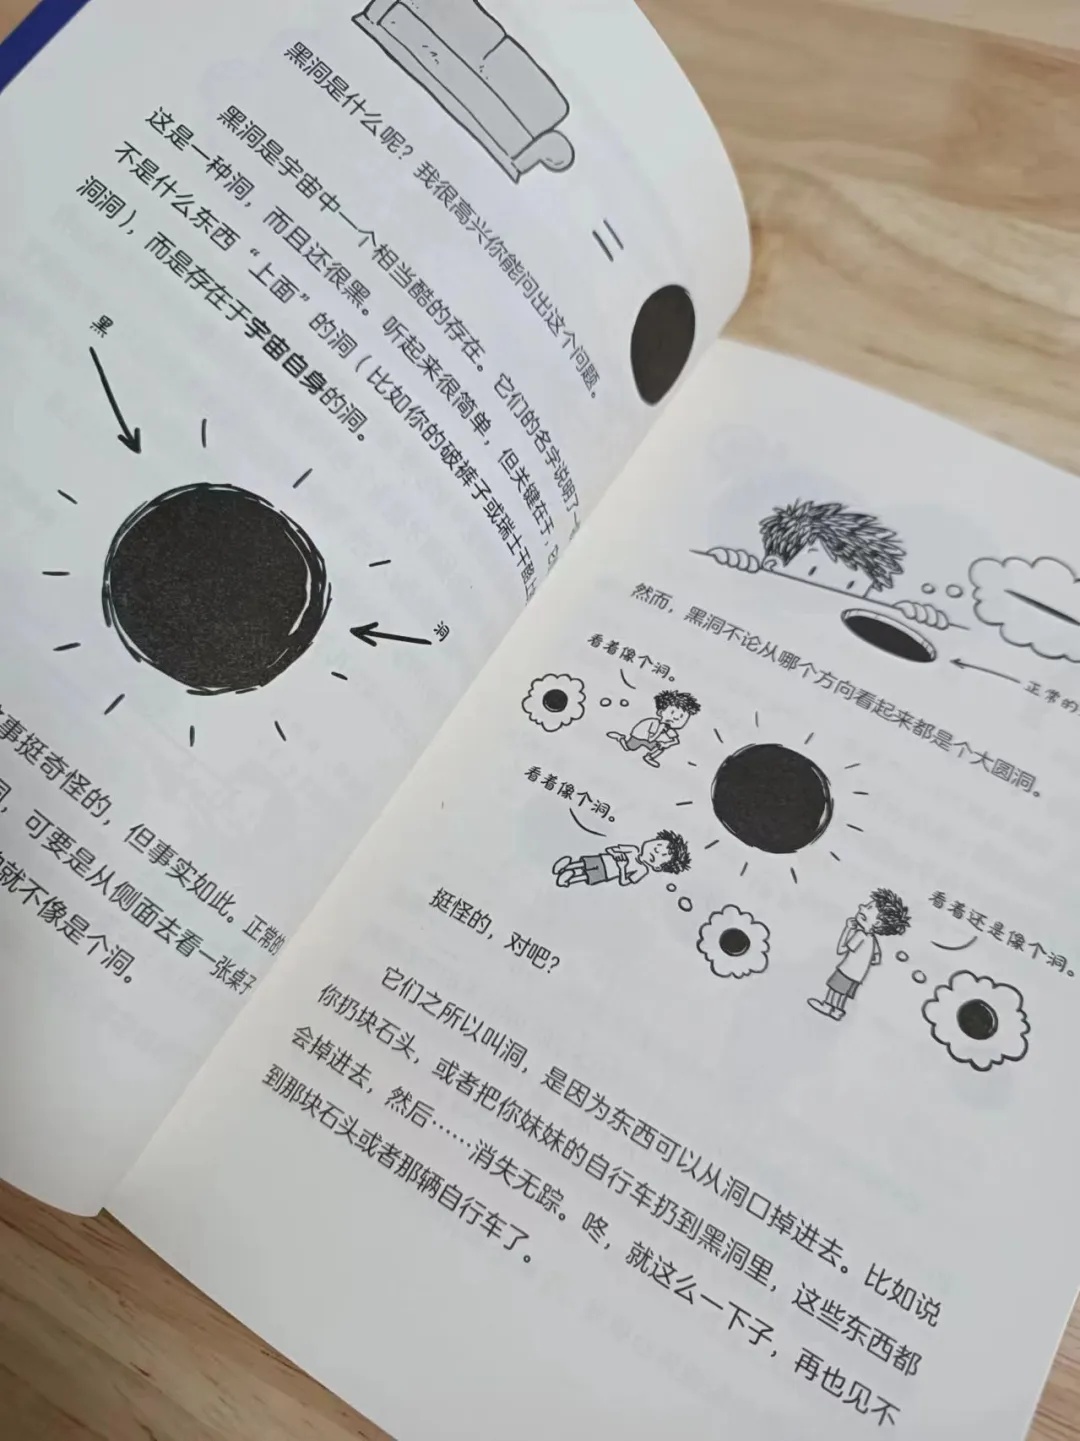 黑洞是什么呢？我很高兴你能问出这个问题。
黑洞是宇宙中一个相当酷的存在。它们的名字说明了一
这是一种洞，而且还很黑。听起来很简单，但关键在于，它
不是什么东西“上面”的洞（比如你的破裤子或瑞士干酪上
洞洞），而是存在于宇宙自身的洞。
黑
洞
事挺奇怪的，但事实如此。正常的
，可要是从侧面去看一张桌子
就不像是个洞。
正常的
然而，黑洞不论从哪个方向看起来都是个大圆洞。
看着像个洞。
看着像个洞。
看着还是像个洞。
挺怪的，对吧？
它们之所以叫洞，是因为东西可以从洞口掉进去。比如说
你扔块石头，或者把你妹妹的自行车扔到黑洞里，这些东西都
会掉进去，然后……消失无踪。咚，就这么一下子，再也见不
到那块石头或者那辆自行车了。